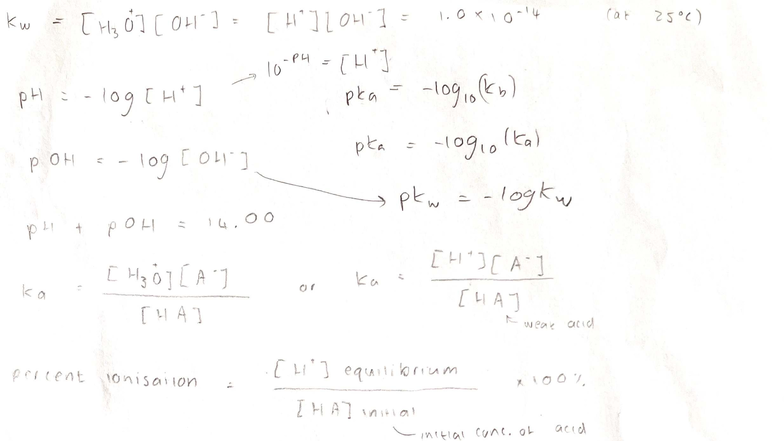 Kw = [H₃O⁺][OH⁻] = [H⁺][OH⁻] = 1.0 × 10⁻¹⁴ (at 25°C)
10^-PH = [H⁺]
pH = -log [H⁺]
pka = -log₁₀(kb)
pka = -log₁₀(ka)
pOH = -log [OH⁻]
pkw = -logkw
pH + pOH = 14.00
ka = [H₃O⁺][A⁻] / [HA] or ka = [H⁺][A⁻] / [HA]
weak acid
percent ionisation = [H⁺] equilibrium / [HA] initial × 100%
initial conc. of acid